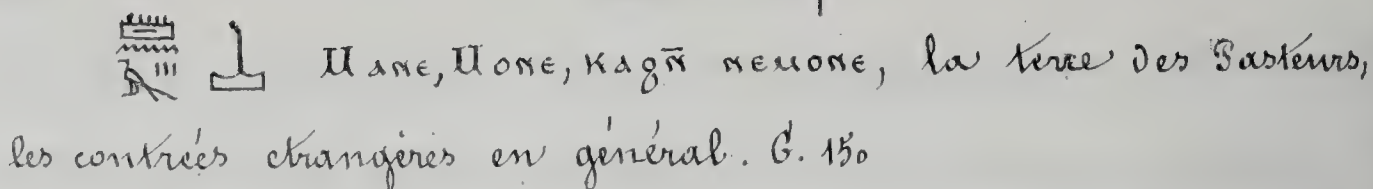 Ⲙⲁⲛⲉ, Ⲙⲟⲛⲉ, ⲕⲁϩⲛ̄ ⲛⲉⲙⲟⲛⲉ, la terre des Pasteurs,
les contrées étrangères en général. G. 150